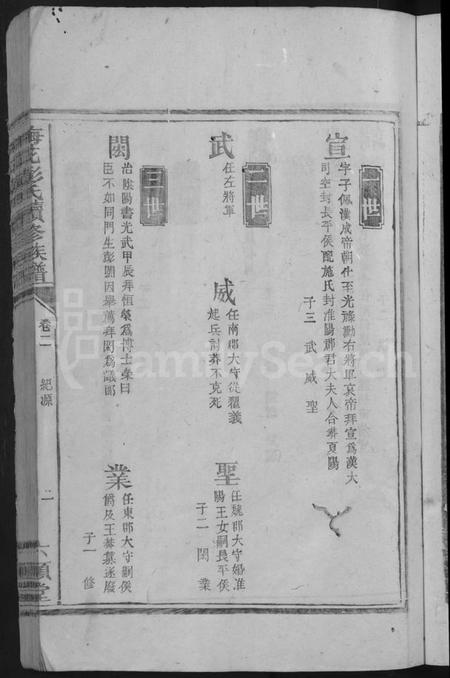 一世
宣
字子佩漢成帝朝仕至光祿勳右將軍哀帝拜宣為漢大
司空封長平侯配施氏封淮陽郡君大夫人合葬夏陽
子三 武 威 聖
二世
武
任左將軍
威
任南郡大守從翟義
起兵討莽不克死
聖
任魏郡大守婚淮
陽王女嗣長平侯
子二 閎 業
三世
閎
治歐陽書光武甲辰拜恒榮為博士榮曰
臣不如同門生彭閎因舉薦拜閎為議郎
業
任東郡大守嗣侯
爵及王莽篡遂廢
子一 修
彭氏續修族譜
卷二
紀源
二
六順堂
FamilySearch